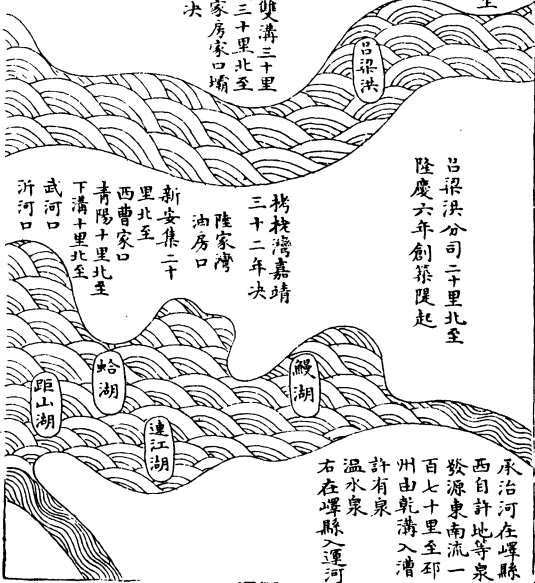 雙溝三十里
三十里北至
家房家口壩
决
呂梁洪
呂梁洪分司二十里北至
隆慶六年創築隄起
栲栳灣嘉靖
三十二年决
陸家灣
油房口
新安集二十
里北至
西曹家口
青陽十里北至
下溝十里北至
武河口
沂河口
鰻湖
蛤湖
連江湖
距山湖
承治河在嶧縣
西自許地等泉
發源東南流一
百七十里至邳
州由乾溝入漕
許有泉
温水泉
右在嶧縣入運河